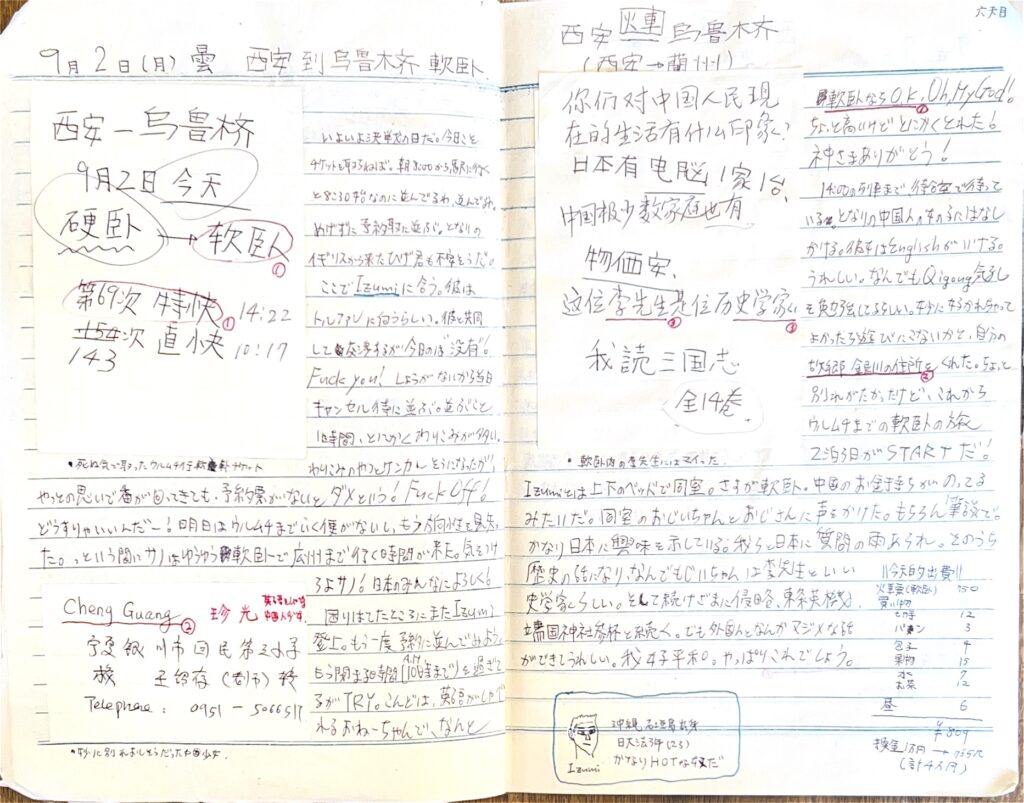 9月2日(月) 曇 西安到乌鲁木齐 軟卧
西安 — 乌鲁木齐
9月2日 今天
硬卧 → 软卧
①
第69次 特快 ① 14:22
154次 直快 10:17
143
・死ぬ気で取ったウルムチ行軟卧チケット
いよいよ決戦の日だ。今日こそ
チケットを取らねば。朝8:00から駅に行く
と8:30開始なのに並んでるわ、並んでるわ。
めげずに予約取に並ぶ。となりの
イギリスから来たひげ君も不安そうだ。
ここでIzumiに合う。彼は
トルファンに向うらしい。彼と共同
して交渉するが今日のは"没有"!
Fuck you! しょうがないから当日
キャンセル待に並ぶ。並ぶこと
1時間、とにかくわりこみが多い。
わりこみのやつとケンカしそうになったが、
やっとの思いで番が回ってきても、予約票がないとダメという! Fuck Off!
どうすりゃいいんだー! 明日はウルムチまでいく便がないし、もう方向性を見失っ
た。っという間にサノはゆうゆう軟卧で広州まで行く時間が来た。気をつけ
ろよサノ! 日本のみんなによろしく!
困りはてたところにまたIzumi
登上。もう一度予約に並んでみよう。
もう閉まる時間(A.M10時まで)を過ぎて
るがTRY。こんどは、英語がしゃべ
れるおねーちゃんで、なんと
Cheng Guang ② 珍光 英語をしゃべる
中国人少女
宁夏 银川市 回民 第三小学
Telephone : 0951 — 5066517
・妙に別れおしそうだった中国少女
六天目
西安 火車 乌鲁木齐
(西安→蘭州)
你们对中国人民现
在的生活有什么印象?
日本有电脑1家1台
中国极少数家庭也有
物価安、
这位李先生是位历史学家
③ ③
我読三国志
全14巻
・軟卧内の李先生にはマイった。
軟卧ならO.K. Oh, My God!
①
ちょっと高いけどとにかくとれた!
神さまありがとう!
14:00の列車まで待合室で待って
いる。となりの中国人の女の子にはなし
かける。彼女はEnglishがいける。
うれしい。なんでもQigong気功
を勉強してるらしい。
よかったら遊びにこないかと、自分の
故郷 銀川の住所をくれた。ちょっと
②
別れがたかったけど、これから
ウルムチまでの軟卧の旅
2泊3日がSTARTだ!
Izumiとは上下のベッドで同室。さすが軟卧。中国のお金持ちがのってる
みたいだ。同室のおじいちゃんとおじさんに声をかけた。もちろん筆談で。
かなり日本に興味を示している。我らと日本に質問の雨あられ。そのうち
歴史の話になり、なんでもじいちゃんは李先生といい
史学家らしい。そして続けざまに侵略、東条英機、
靖国神社参拝と続く。でも外国人となんかマジメな話
ができてうれしい。我好平和。やっぱりこれでしょう。
Izumi
沖縄 石垣島出身
日大法3年(23)
かなりHOTな奴だ
!!今天的出費!!
火車票(軟卧) 750
買い物
12
パン 3
包子 4
果物 15
水 7
お茶 12
昼 6
¥809
換金1万円 →
(計4万円)